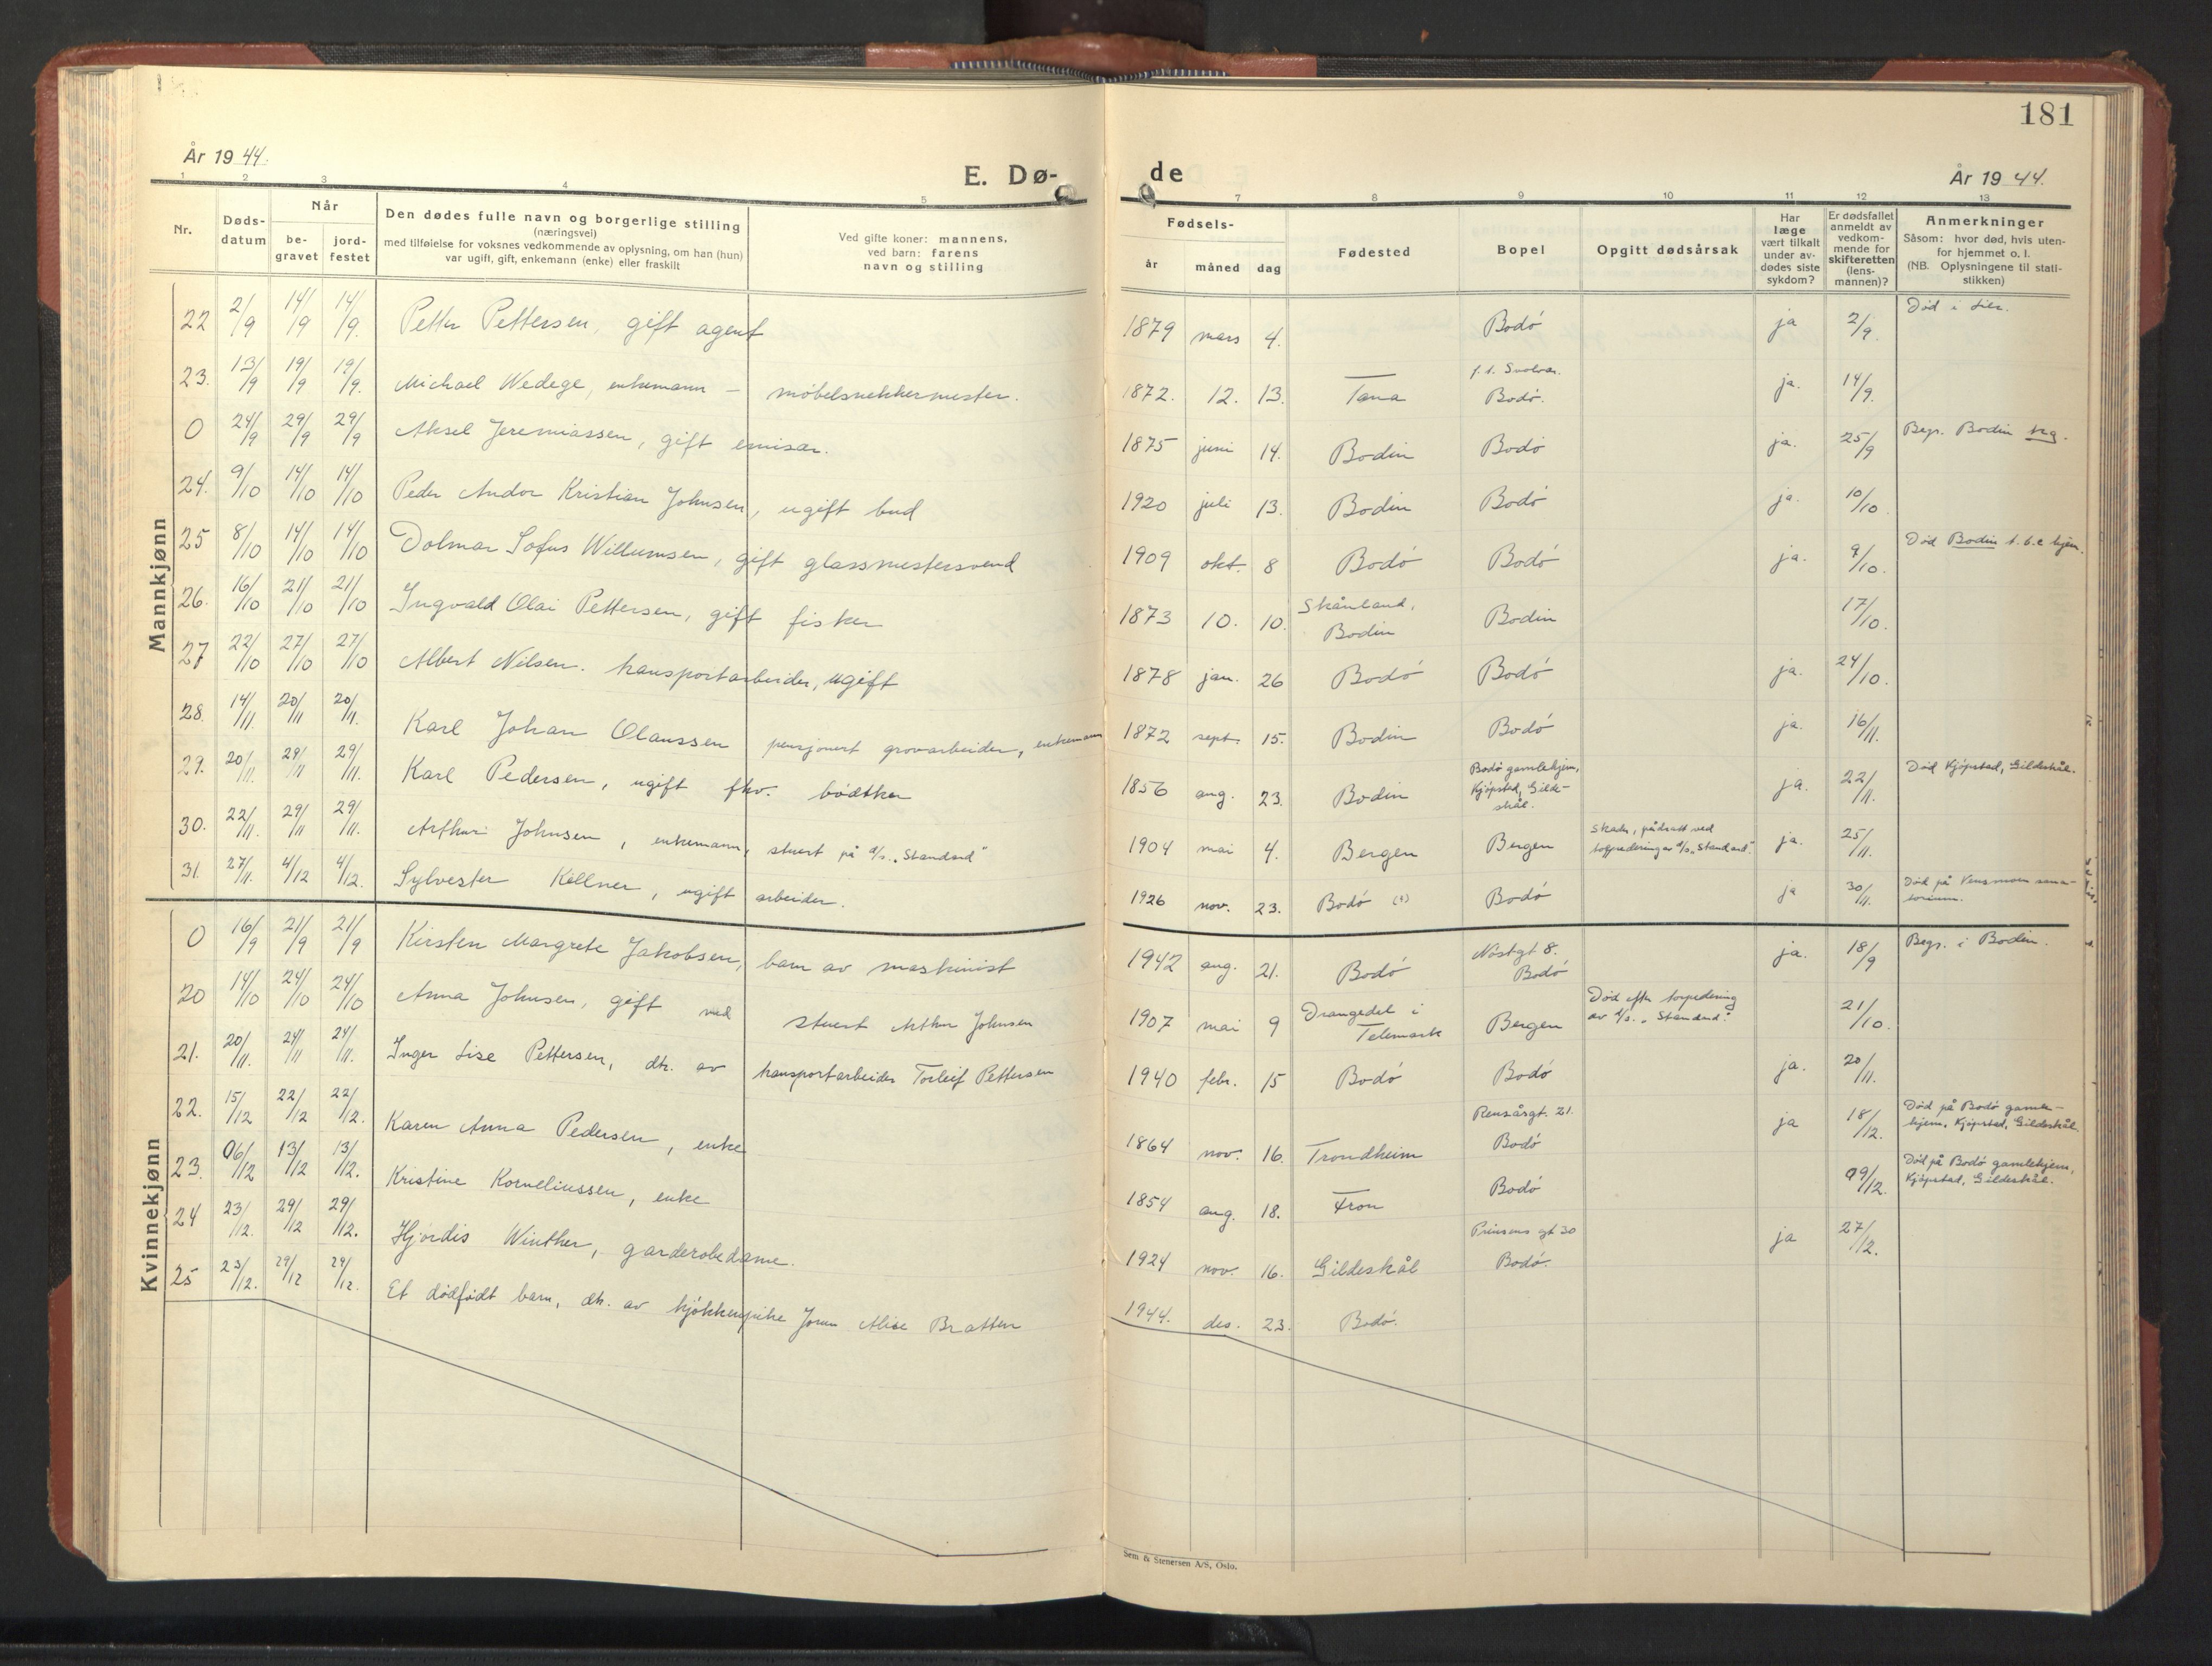 181
År 1944.
E. Døde
År 1944.
1 2 3 4 5 7 8 9 10 11 12 13
Nr.
Døds-
datum
Når
be-
gravet
jord-
festet
Den dødes fulle navn og borgerlige stilling
(næringsvei)
med tilføielse for voksnes vedkommende av oplysning, om han (hun)
var ugift, gift, enkemann (enke) eller fraskilt
Ved gifte koner: mannens,
ved barn: farens
navn og stilling
Fødsels-
år måned dag
Fødested
Bopel
Opgitt dødsårsak
Har
læge
vært tilkalt
under av-
dødes siste
sykdom?
Er dødsfallet
anmeldt av
vedkom-
mende for
skifteretten
(lens-
mannen)?
Anmerkninger
Såsom: hvor død, hvis uten-
for hjemmet o. l.
(NB. Oplysningene til stati-
stikken)
Mannkjønn
22 2/9 14/9 14/9. Petter Pettersen, gift agent 1879 mars 4. Bodö ja 2/9. Död i Lier.
23. 13/9 19/9 19/9. Michael Wedege, enkemann – möbelsnekkermester. 1872. 12. 13. Tana f. t. Svolvær. Bodö. ja. 14/9.
0 24/9 29/9 29/9 Aksel Jeremiassen, gift emisær. 1875 juni 14. Bodin Bodö ja. 25/9 Begr. Bodin
24. 9/10 14/10 14/10 Peder Andor Kristian Johnsen, ugift bud 1920 juli 13. Bodin Bodö ja. 10/10
25 8/10 14/10 14/10 Dolmar Sofus Willumsen, gift glassmestersvend 1909 okt. 8 Bodö Bodö ja. 9/10. Död Bodin t.b.c. hjem.
26. 16/10 21/10 21/10 Ingvald Olai Pettersen, gift fisker 1873 10. 10. Skånland, Bodin Bodin 17/10.
27 22/10 27/10 27/10 Albert Nilsen. transportarbeider, ugift 1878 jan. 26 Bodö Bodö ja. 24/10.
28. 14/11. 20/11 20/11. Karl Johan Olaussen pensjonert grovarbeider, enkemann 1872 sept. 15. Bodin Bodö ja. 16/11.
29. 20/11. 29/11 29/11. Karl Pedersen, ugift fhv. bödtker 1856 aug. 23. Bodin Bodö gamlehjem, Kjöpstad, Gilde-
skål. ja. 22/11. Död Kjöpstad, Gildeskål.
30. 22/11. 29/11 29/11. Arthur Johnsen, enkemann, stuert på d/s. „Standard" 1904 mai 4. Bergen Bergen Skade, pådratt ved
torpedering av d/s. „Standard". ja. 25/11.
31. 27/11. 4/12 4/12. Sylvester Köllner, ugift arbeider. 1926 nov. 23. Bodö (?) Bodö ja 30/11. Död på Vensmoen sana-
torium.
Kvinnekjønn
0 16/9 21/9 21/9 Kirsten Margrete Jakobsen, barn av maskinist 1942 aug. 21. Bodö Nöstgt 8. Bodö ja. 18/9 Begr. i Bodin.
20 14/10 24/10 24/10 Anna Johnsen, gift med stuert Arthur Johnsen 1907 mai 9 Drangedal i
Telemark Bergen Död efter torpedering
av d/s. „Standard". 21/10.
21. 20/11. 24/11 24/11. Inger Lise Pettersen, dtr. av transportarbeider Torleif Pettersen 1940 febr. 15 Bodö Bodö ja. 20/11.
22. 15/12 22/12 22/12. Karen Anna Pedersen, enke 1864 nov. 16. Trondheim Rensåsgt. 21. Bodö ja 18/12. Död på Bodö gamle-
hjem, Kjöpstad, Gildeskål.
23. 06/12 13/12 13/12. Kristine Korneliussen, enke 1854 aug. 18. Fron Bodö 09/12. Död på Bodö gamlehjem,
Kjöpstad, Gildeskål.
24 23/12. 29/12 29/12. Hjördis Winther, garderobedame. 1924 nov. 16. Gildeskål Prinsens gt 30 Bodö. ja 27/12.
25 23/12. 29/12 29/12. Et dödfödt barn, dtr. av kjökkenpike Jorun Alise Bratten 1944. des. 23. Bodö.
Sem & Stenersen A/S, Oslo.